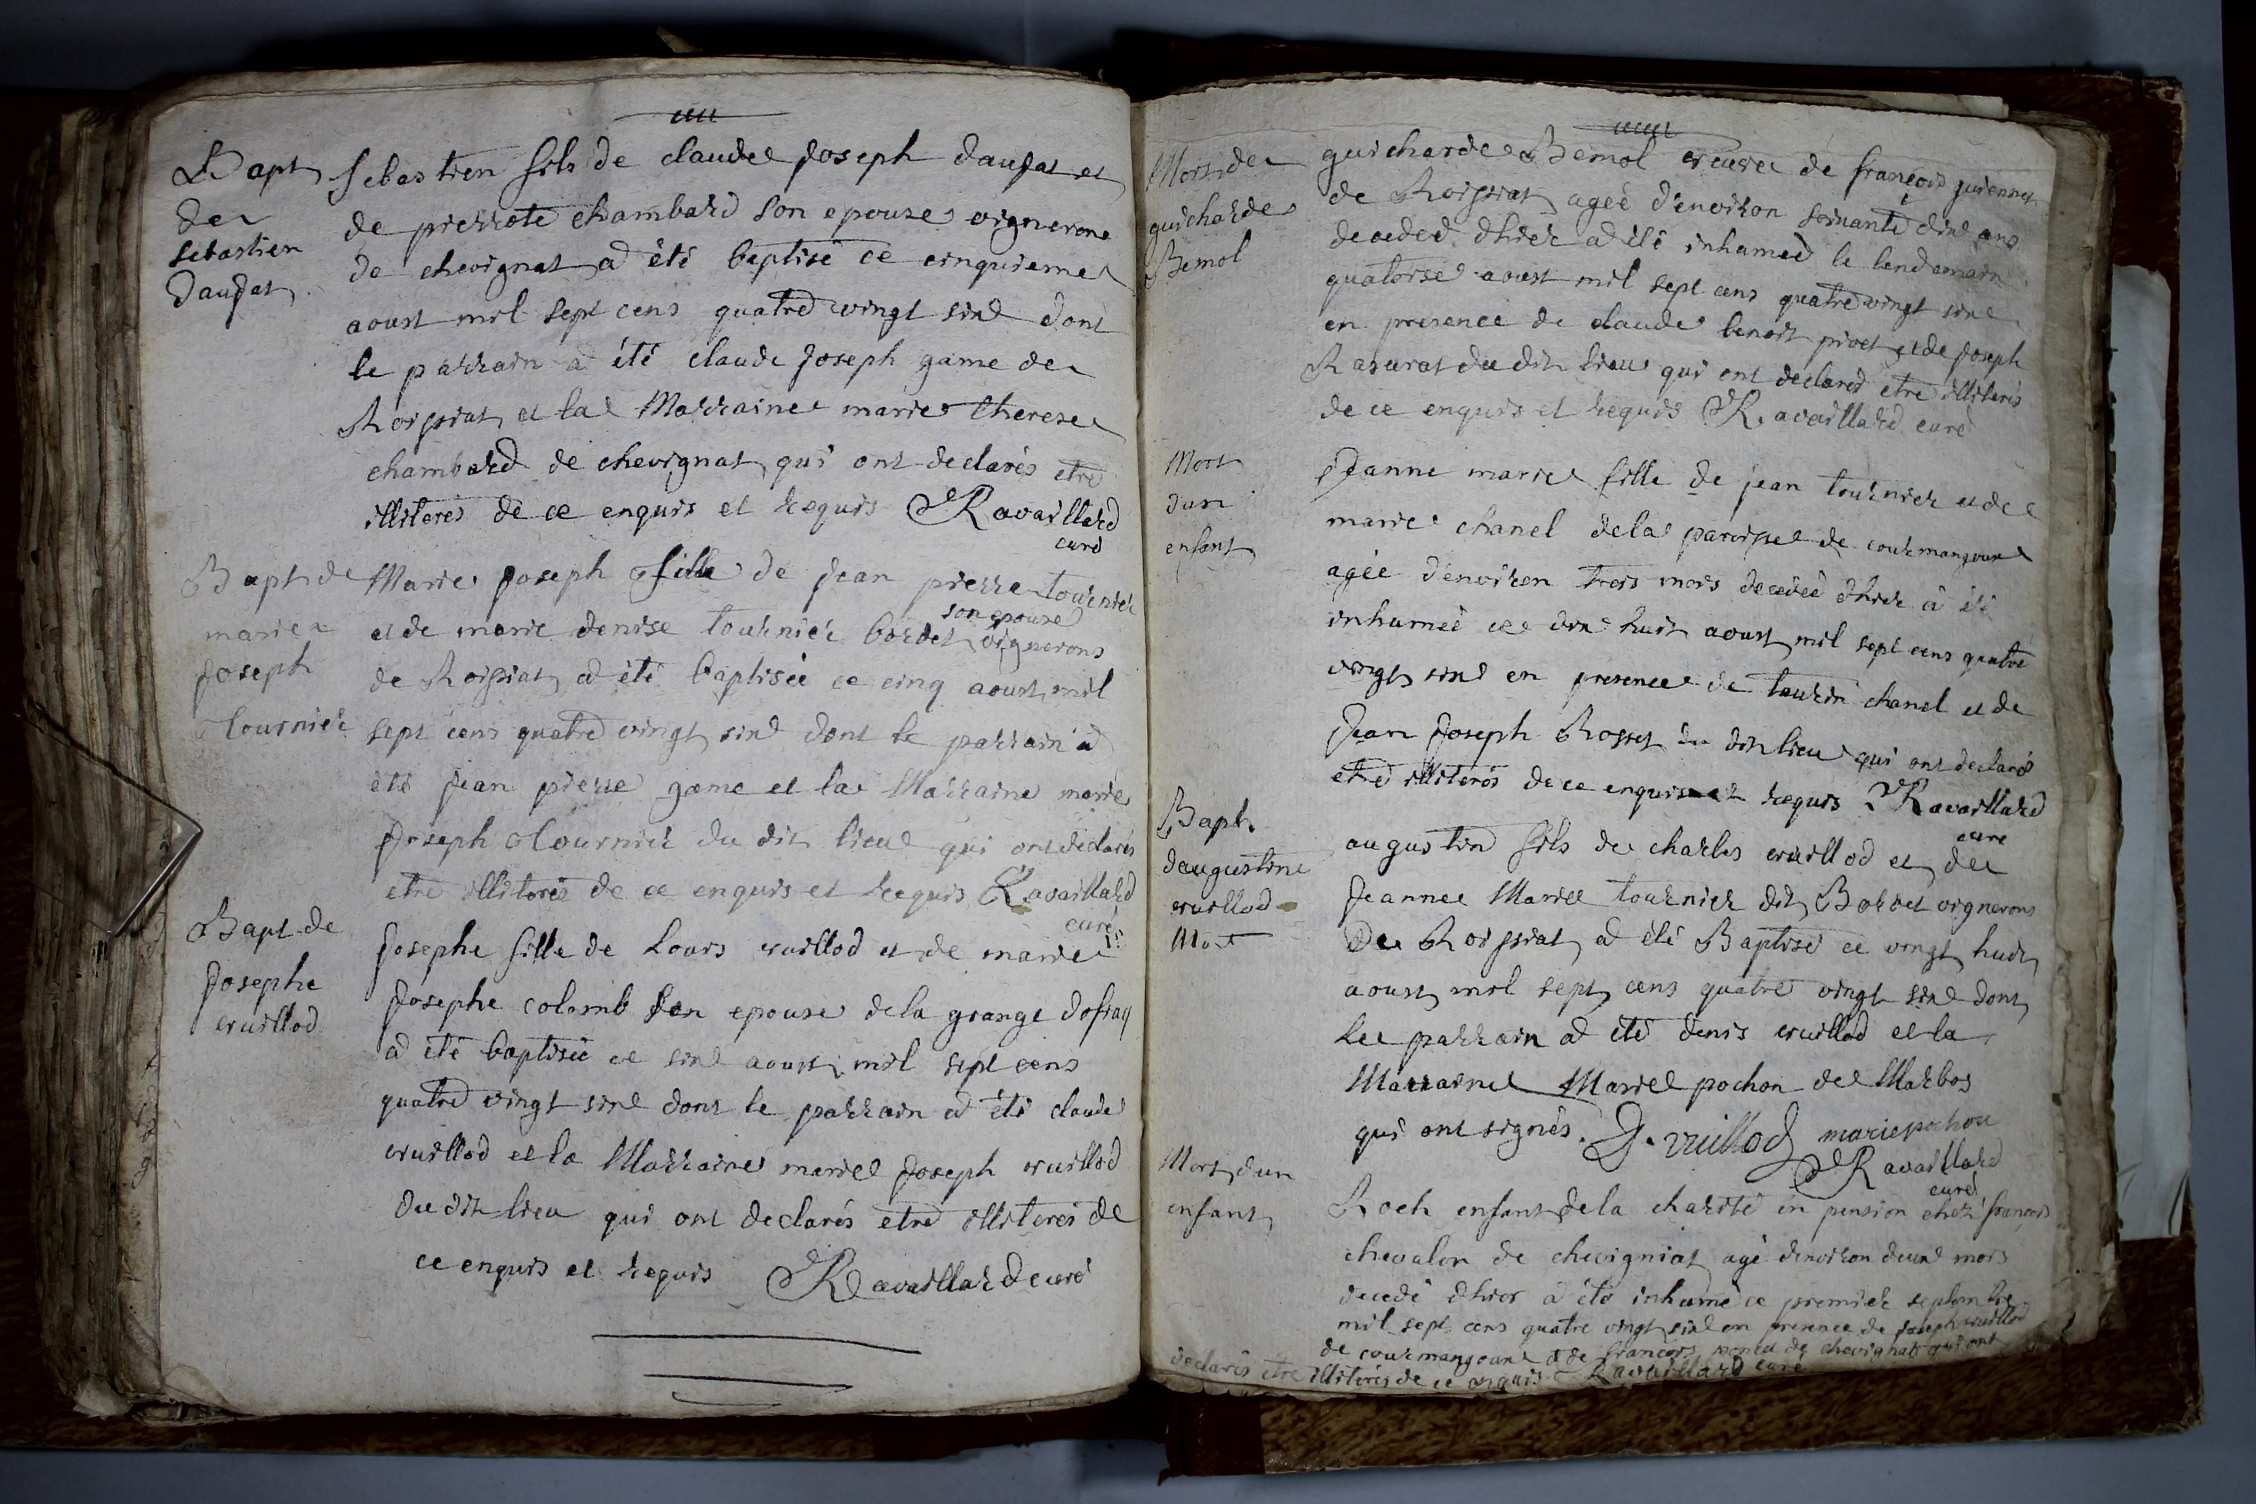 Bapt
de
sebastien
daujat
sebastien fils de claude joseph daujat et
de pierrote chambard son epouse vignerons
de chevignat a été baptisé ce cinquieme
aoust mil sept cens quatre vingt sixe dont
le parrain a été claude joseph game de
Roissiat et la Marraine marie therese
chambard de chevignat qui ont declarés etre
illiterés de ce enquis et requis Ravaillard
curé
Bapt de
marie
joseph
tournier
Marie joseph fille de jean pierre tournier
et de marie denise tournier bordet son epouse vignerons
de Roissiat a été baptisée ce cinq aoust mil
sept cens quatre vingt sixe dont le parrain a
été jean pierre game et la Marraine marie
joseph tournier du dit lieu qui ont declarés
etre illiterés de ce enquis et requis Ravaillard
curé
Bapt de
josephe
vuillod
josephe fille de Louis vuillod et de marie
josephe colomb son epouse de la grange
a été baptisée ce sixe aoust mil sept cens
quatre vingt sixe dont le parrain a été claude
vuillod et la Marraine marie joseph vuillod
du dit lieu qui ont declarés etre illiterés de
ce enquis et requis Ravaillard curé
Mort de
guicharde
Bemol
guicharde Bemol veuve de françois
de Roissiat ageé d'environ soixante dixe ans
decedeé dhier a été inhameé le lendemain
quatorse aoust mil sept cens quatre vingt sixe
en presence de claude benoit et de joseph
Rasurat du dit lieu qui ont declaré etre illiterés
de ce enquis et requis Ravaillard curé
Mort
dun
enfant
jeanne marie fille de jean tournier et de
marie chanel de la paroisse de courmangoux
agée d'environ trois mois decedeé dhier a été
inhumeé ce dix huit aoust mil sept cens quatre
vingt sixe en presence de taurin chanel et de
jean joseph Rosset du dit lieu qui ont declarés
etre illiterés de ce enquis et requis Ravaillard
curé
Bapt
daugustin
vuillod
Mort
augustin fils de charles vuillod et de
jeanne Marie tournier dit Bordet vignerons
De Roissiat a été Baptisé ce vingt huit
aoust mil sept cens quatre vingt sixe dont
Le parrain a été denis vuillod et la
Marraine Marie pochon de Marbos
qui ont signés. D. vuillod marie pochon
Ravaillard
curé
Mort dun
enfant
Roch enfant de la charité en pension chez françois
chevalon de chevigniat agé denviron deuxe mois
decedé dhier a été inhumé ce premier septembre
mil sept cens quatre vingt sixe en presence de joseph vuillod
de courmangoux et de françois de chevignat qui ont
declarés etre illiterés de ce enquis Ravaillard curé